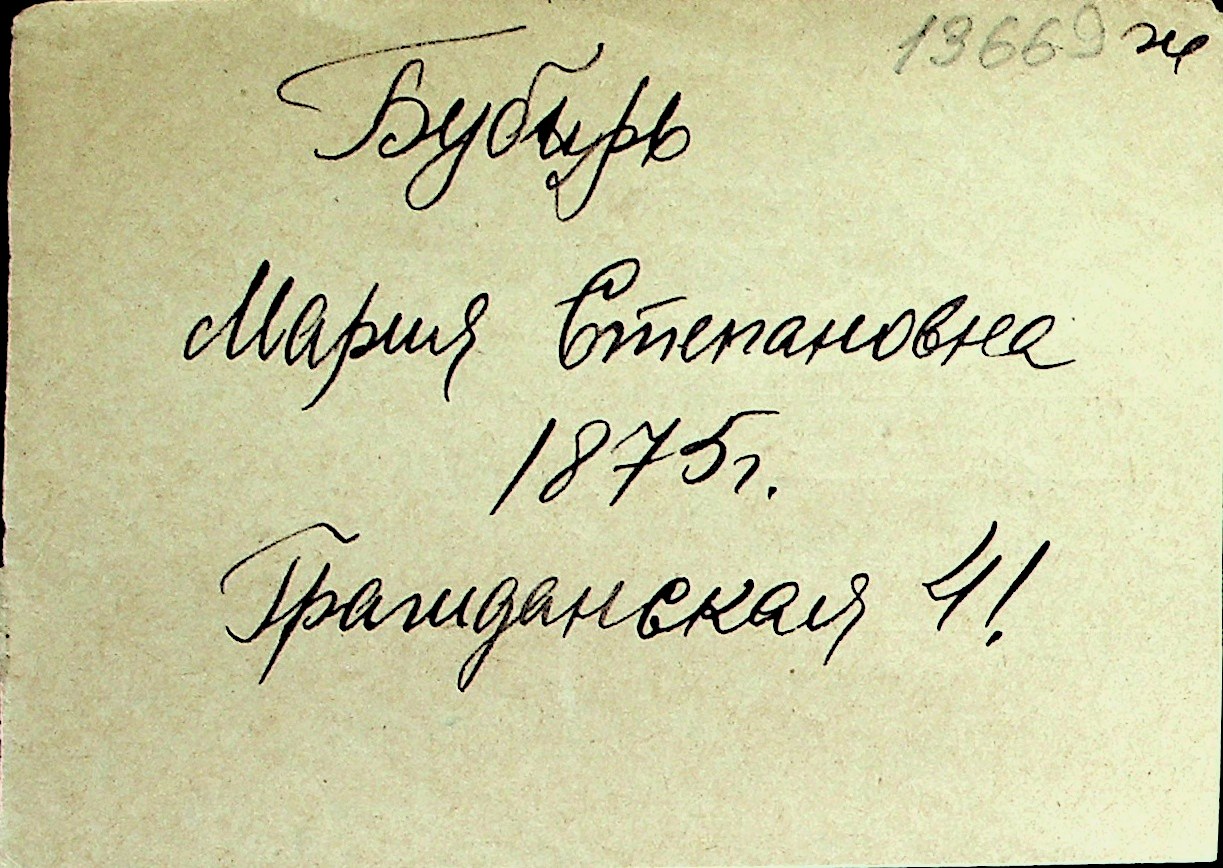 13669 ж
Бубырь
Мария Степановна
1875г.
Гражданская 4!